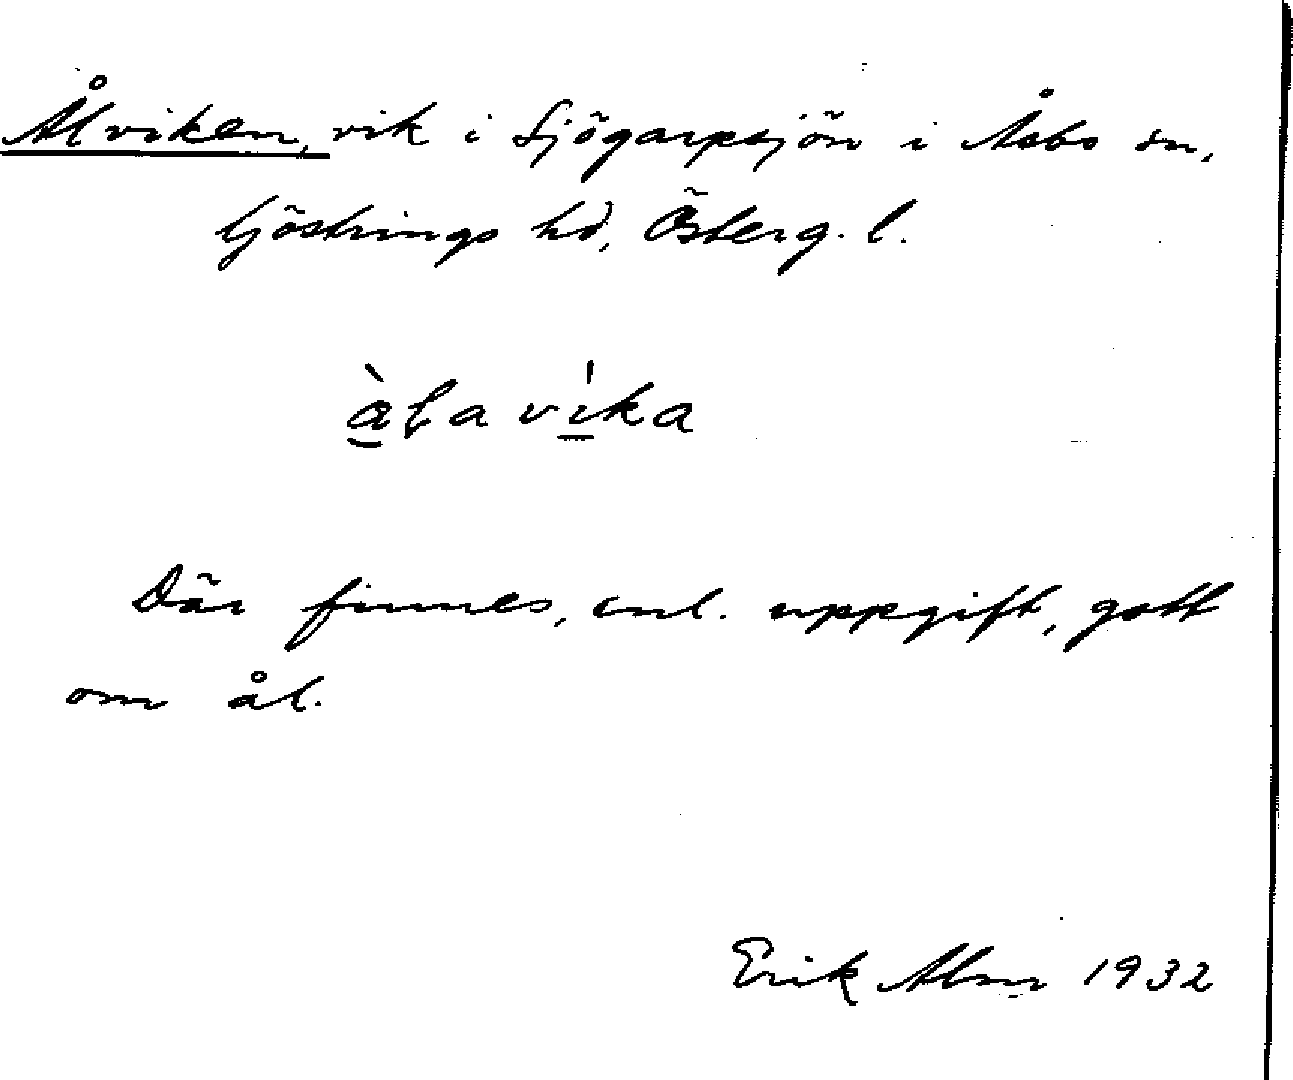 Ålviken, vik i Sjögarpsjön i Åsbo sn,
Göstrings hd, Österg. l.
àlavika
Där finnes, enl. uppgift, gott
om ål.
Erik Alm 1932